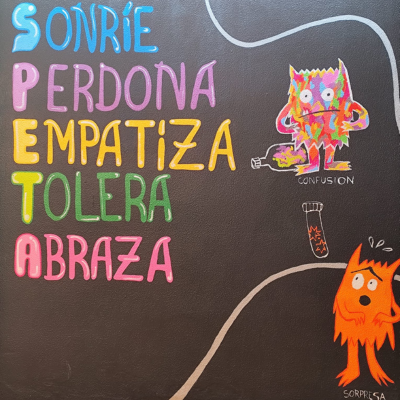 SONRÍE
PERDONA
EMPATIZA
TOLERA
ABRAZA
CONFUSION
SORPRESA